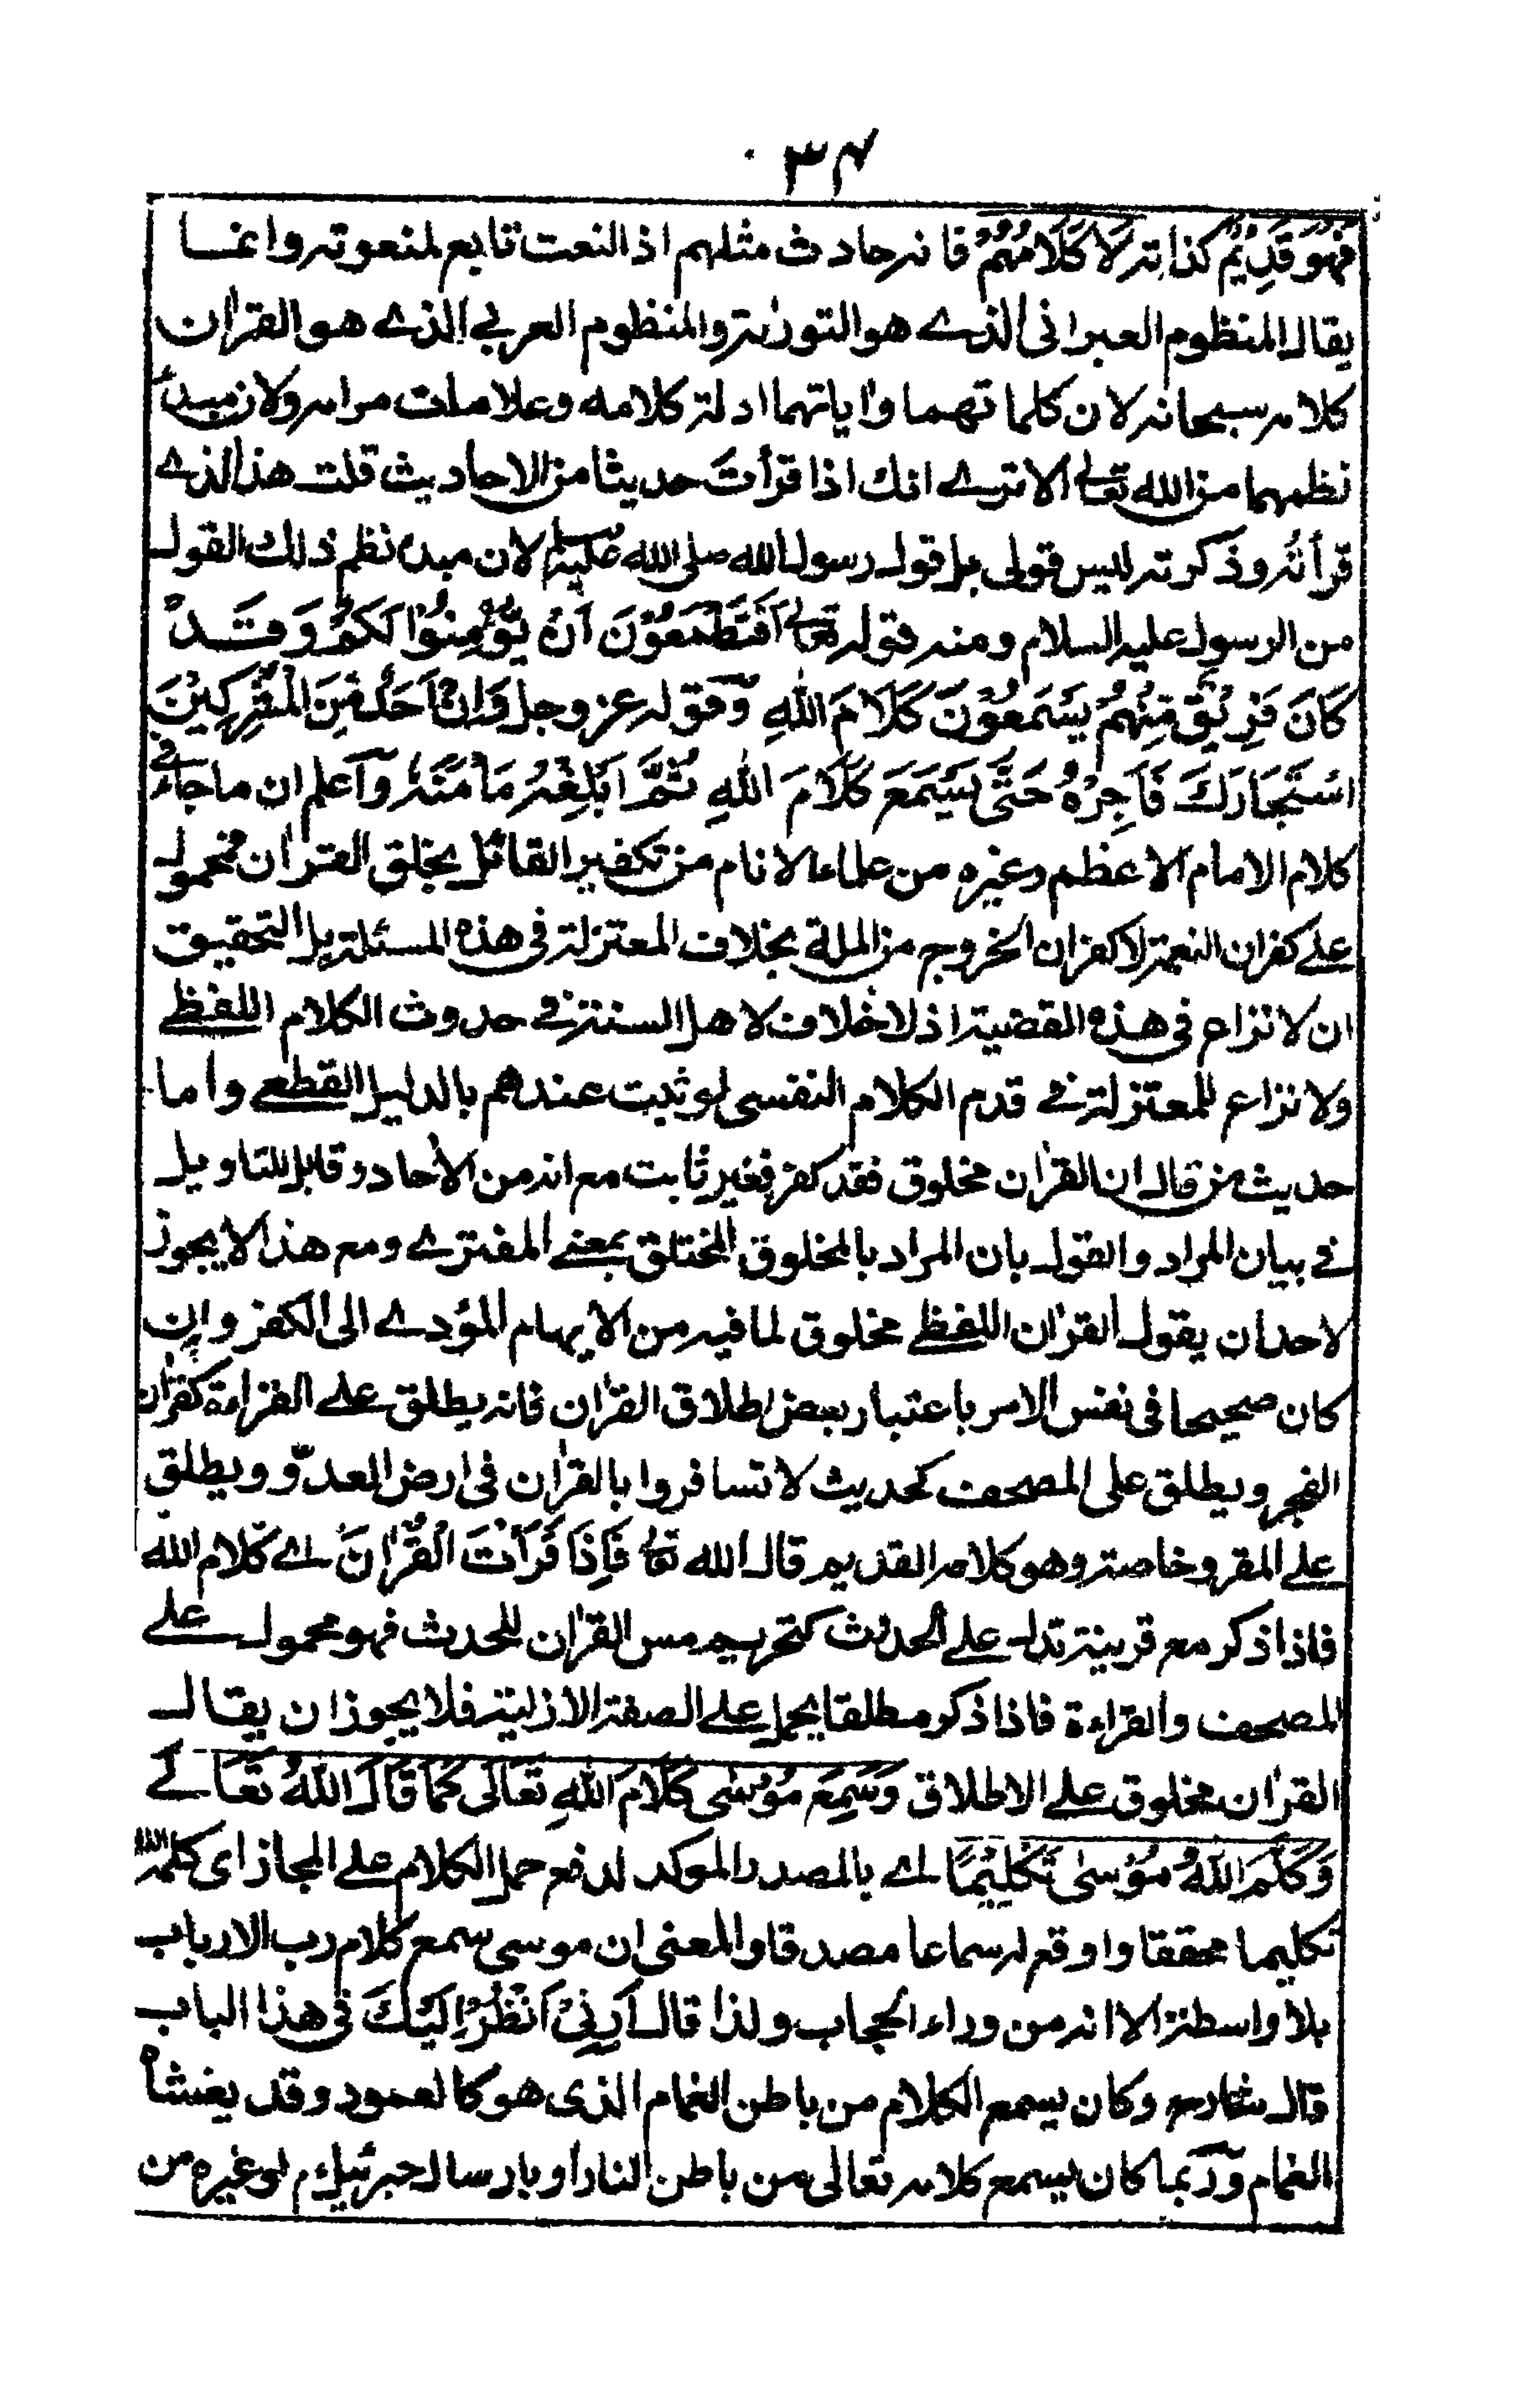 ۳۴
فَهُوَ قَدِيْمٌ كذاته لَا كَلَامُهُمْ فانه حادث مثلهم اذ النعت تابع لمنعوته وانما
يقال المنظوم العبرانی الذے هو التورٰىة والمنظوم العربي الذے هو القرٰان
كلامه سبحانه لان كلماتهما واٰياتهما ادلة كلامه وعلامات مرامه ولان مبدأ
نظمهما من الله تعالى الا ترے انك اذا قرأتَ حديثا من الاحاديث قلت هذا الذے
قرأتُه وذكرته ليس قولى بل قول رسول الله صلى الله عليه وسلم لان مبدء نظم ذلك القول
من الرسول عليه السلام ومنه قوله تعالى اَفَتَطْمَعُوْنَ اَنْ يُّؤْمِنُوْا لَكُمْ وَقَدْ
كَانَ فَرِيْقٌ مِّنْهُمْ يَسْمَعُوْنَ كَلَامَ اللّٰهِ وقوله عز وجل وَاِنْ اَحَدٌ مِّنَ الْمُشْرِكِيْنَ
اسْتَجَارَكَ فَاَجِرْهُ حَتّٰى يَسْمَعَ كَلَامَ اللّٰهِ ثُمَّ اَبْلِغْهُ مَاْمَنَهٗ واعلم ان ما جاء فے
كلام الامام الاعظم وغيره من علماء الانام من تكفير القائل بخلق القرٰان فمحمول
علے كفران النعمة لا كفران الخروج من الملة بخلاف المعتزلة فى هذه المسئلة بل التحقيق
ان لا نزاع فى هذه القضية اذ لا خلاف لاهل السنة فے حدوث الكلام اللفظے
ولا نزاع للمعتزلة فے قدم الكلام النفسى لو ثبت عندهم بالدليل القطعے واما
حديث من قال ان القرٰان مخلوق فقد كفر فغير ثابت مع انه من الاٰحاد وقابل للتاويل
فے بيان المراد والقول بان المراد بالمخلوق المختلق بمعنے المفترے ومع هذا لا يجوز
لاحد ان يقول القرٰان اللفظے مخلوق لما فيه من الايهام المؤدے الى الكفر وان
كان صحيحا فى نفس الامر باعتبار بعض اطلاق القرٰان فانه يطلق علے القراءة كقرٰان
الفجر ويطلق على المصحف كحديث لا تسافروا بالقرٰان فى ارض العدوّ ويطلق
علے المقرو خاصة وهو كلامه القديم قال الله تعالى فَاِذَا قَرَاْتَ الْقُرْاٰنَ اے كلام الله
فاذا ذكر مع قرينة تدل علے الحدث كتحريم مس القرٰان للمحدث فهو محمول علے
المصحف والقراءة فاذا ذكر مطلقا يحمل علے الصفة الازلية فلا يجوز ان يقال
القرٰان مخلوق علے الاطلاق وَسَمِعَ مُوْسٰى كَلَامَ اللّٰهِ تَعَالٰى كَمَا قَالَ اللّٰهُ تَعَالےٰ
وَكَلَّمَ اللّٰهُ مُوْسٰى تَكْلِيْمًا اے بالمصدر الموكد لدفع حمل الكلام علے المجاز اى كلمه الله
تكليما محققا واوقع له سماعا مصدقا والمعنى ان موسى سمع كلام رب الارباب
بلا واسطة الا انه من وراء الحجاب ولذا قال اَرِنِیْ اَنْظُرْ اِلَيْكَ فى هذا الباب
قال شارح وكان يسمع الكلام من باطن الغمام الذى هو كالعمود وقد يغشاه
الغمام وربما كان يسمع كلامه تعالى من باطن النار او بارسال جبرئيل م او غيره من